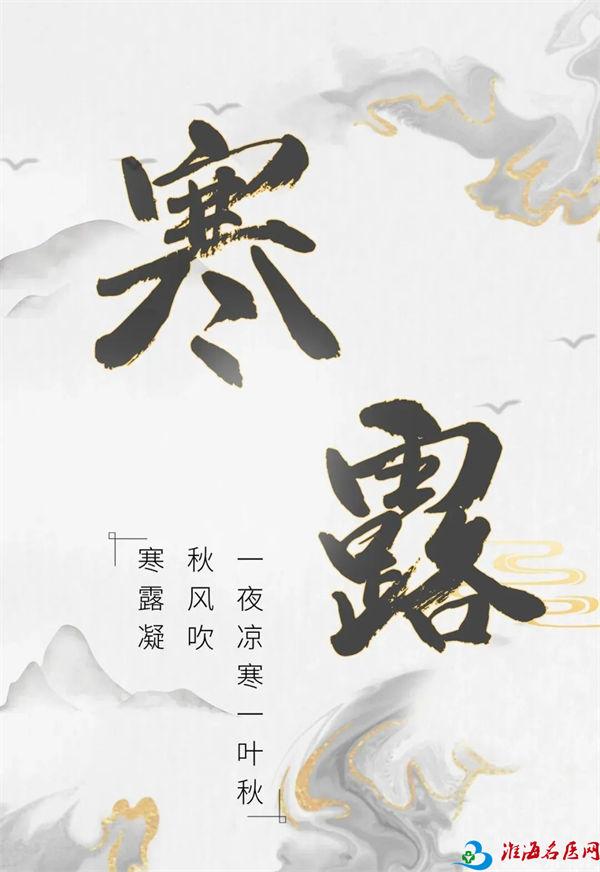 寒
露
寒露凝
秋风吹
一夜凉寒一叶秋
淮海名医网